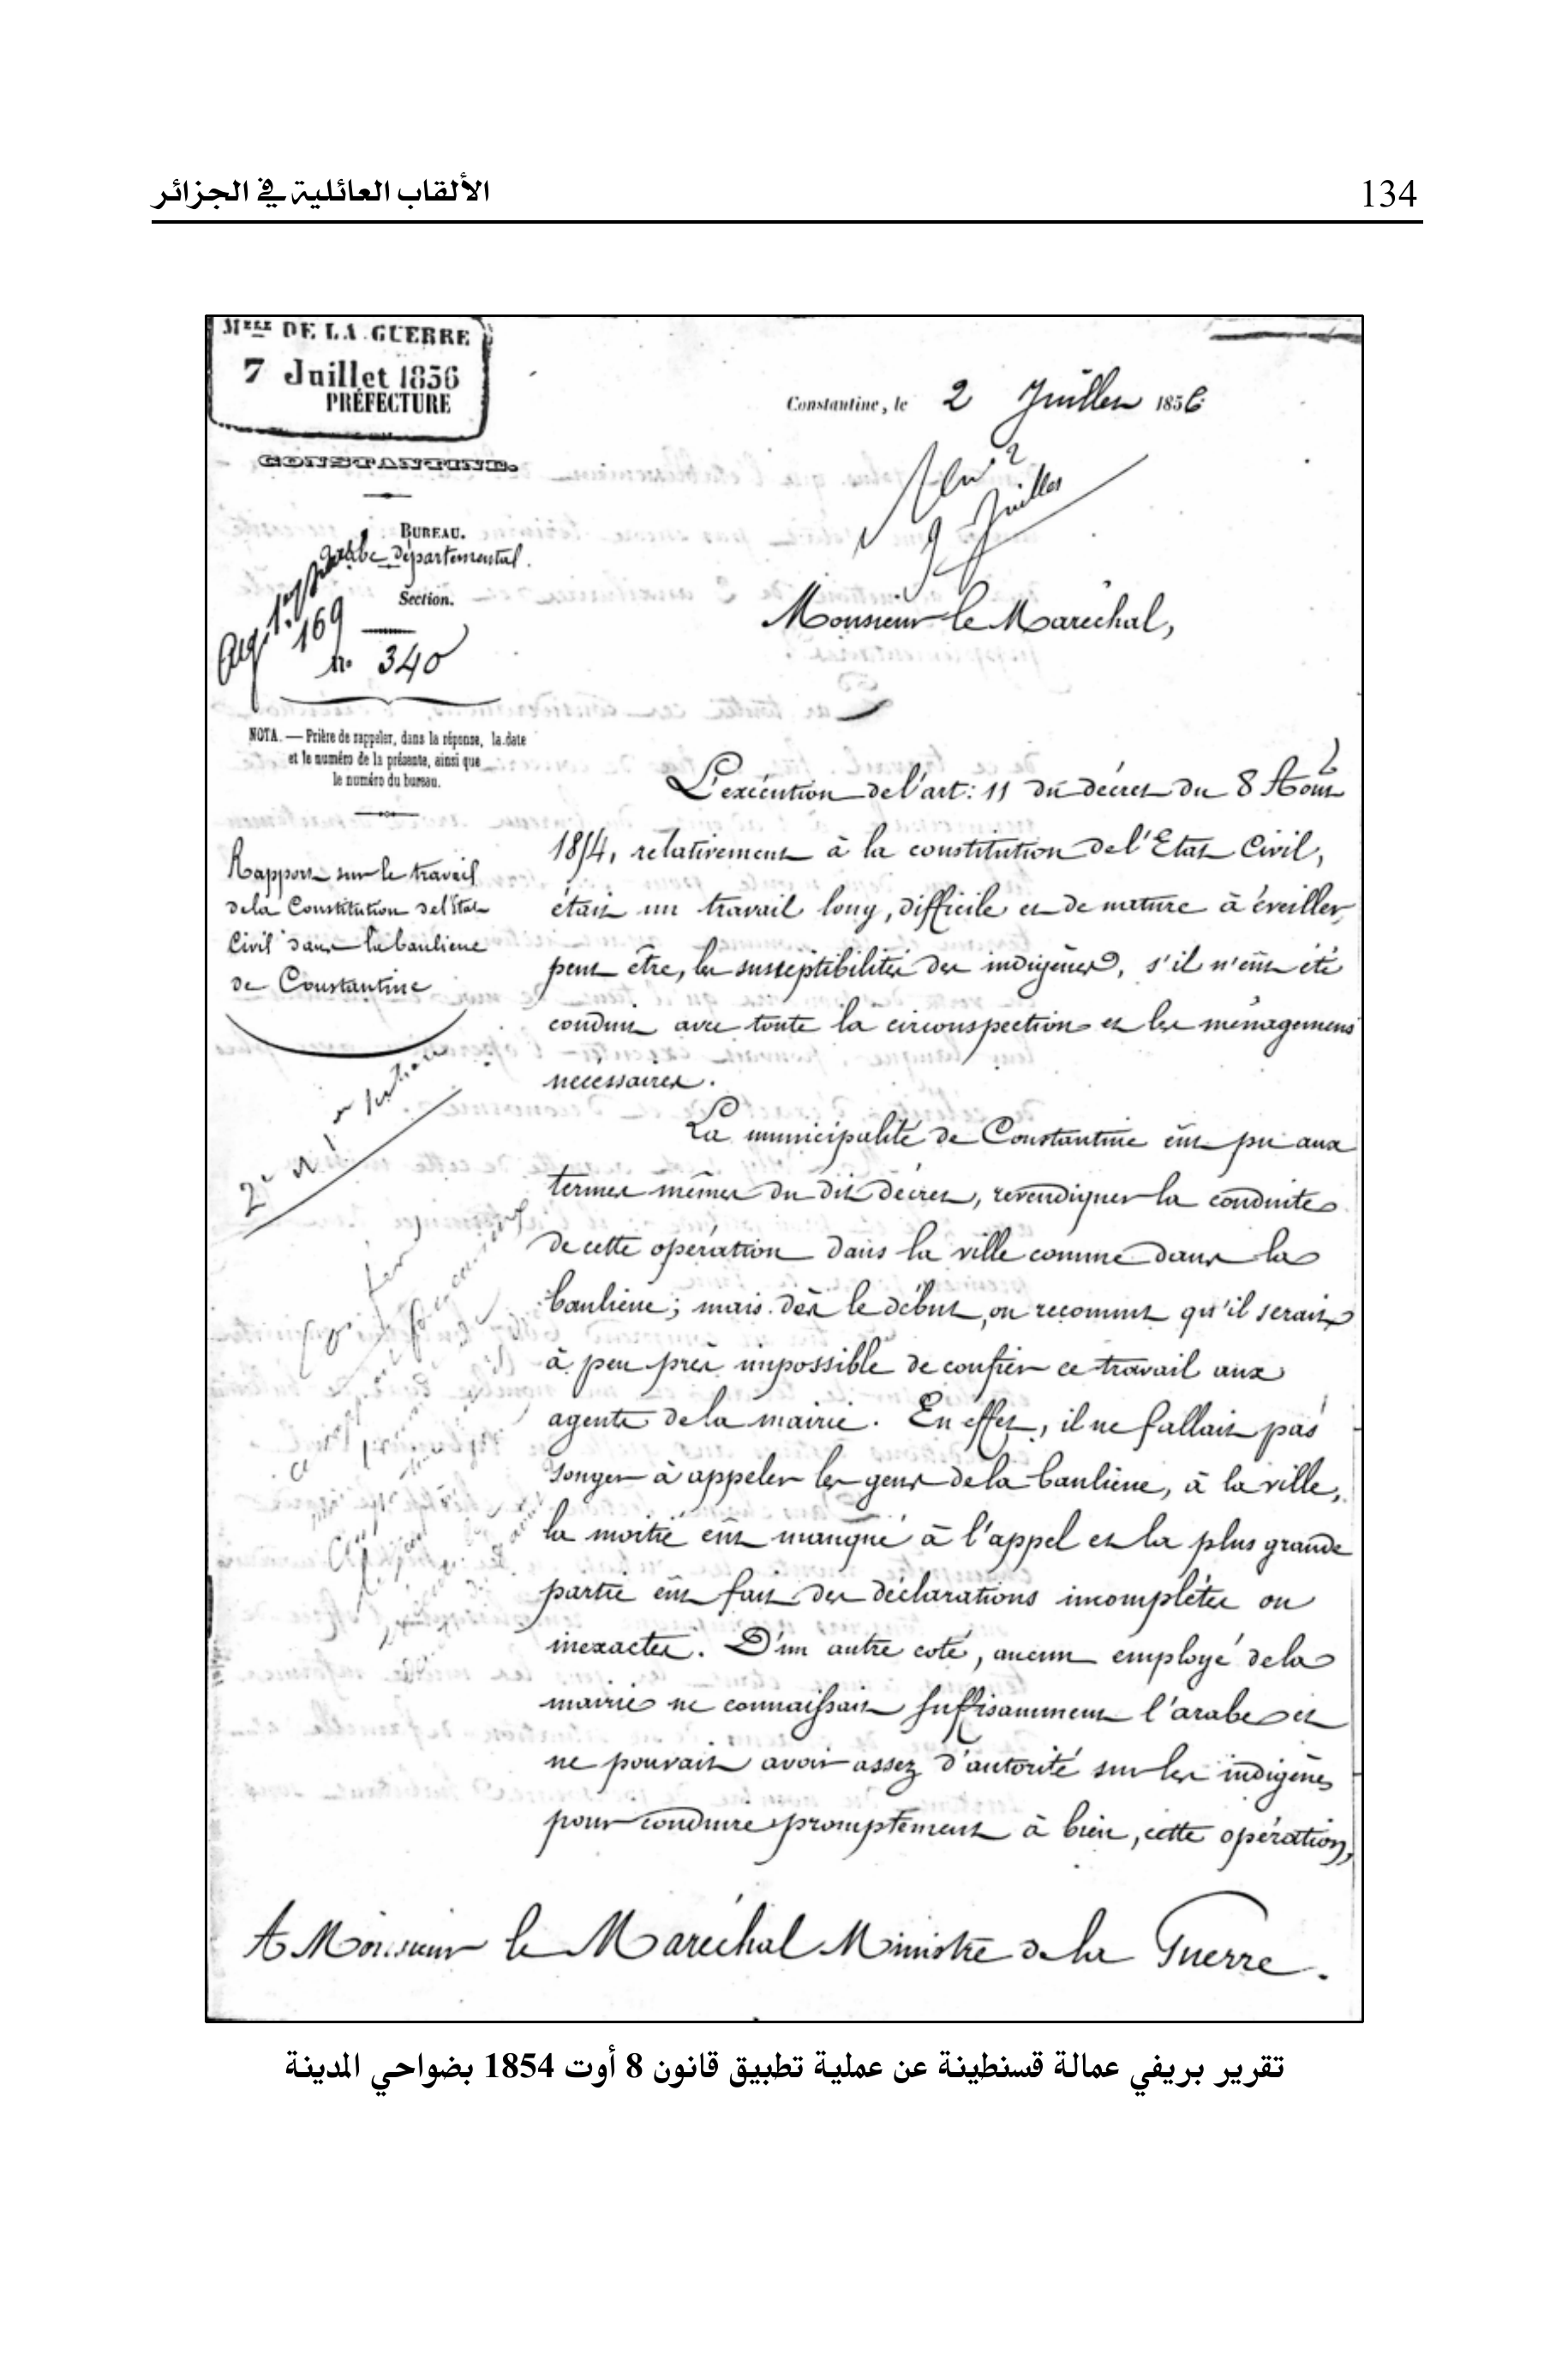 الألقاب العائلية في الجزائر
134
Mère DE LA GUERRE
7 Juillet 1856
PRÉFECTURE
CONSTANTINE.
Constantine, le 2 Juillet 1856
9 Juillet
BUREAU.
arabe départemental.
Section.
169
n° 340
Monsieur le Maréchal,
NOTA. — Prière de rappeler, dans la réponse, la date
et le numéro de la présente, ainsi que
le numéro du bureau.
Rapport sur le travail
de la Constitution de l'état
Civil dans la banlieue
de Constantine
L'exécution de l'art: 11 du décret du 8 Août
1854, relativement à la constitution de l'Etat Civil,
était un travail long, difficile et de nature à éveiller,
peut être, les susceptibilités des indigènes, s'il n'eût été
conduit avec toute la circonspection et les ménagemens
nécessaires.
La municipalité de Constantine eût pu aux
termes mêmes du dit décret, revendiquer la conduite
de cette opération dans la ville comme dans la
banlieue; mais dès le début, on reconnut qu'il serait
à peu près impossible de confier ce travail aux
agents de la mairie. En effet, il ne fallait pas
songer à appeler les gens de la banlieue, à la ville,
la moitié eût manqué à l'appel et la plus grande
partie eût fait des déclarations incomplètes ou
inexactes. D'un autre coté, aucun employé de la
mairie ne connaissait suffisamment l'arabe et
ne pouvait avoir assez d'autorité sur les indigènes
pour conduire promptement à bien, cette opération,
A Monsieur le Maréchal Ministre de la Guerre.
تقرير بريفي عمالة قسنطينة عن عملية تطبيق قانون 8 أوت 1854 بضواحي المدينة